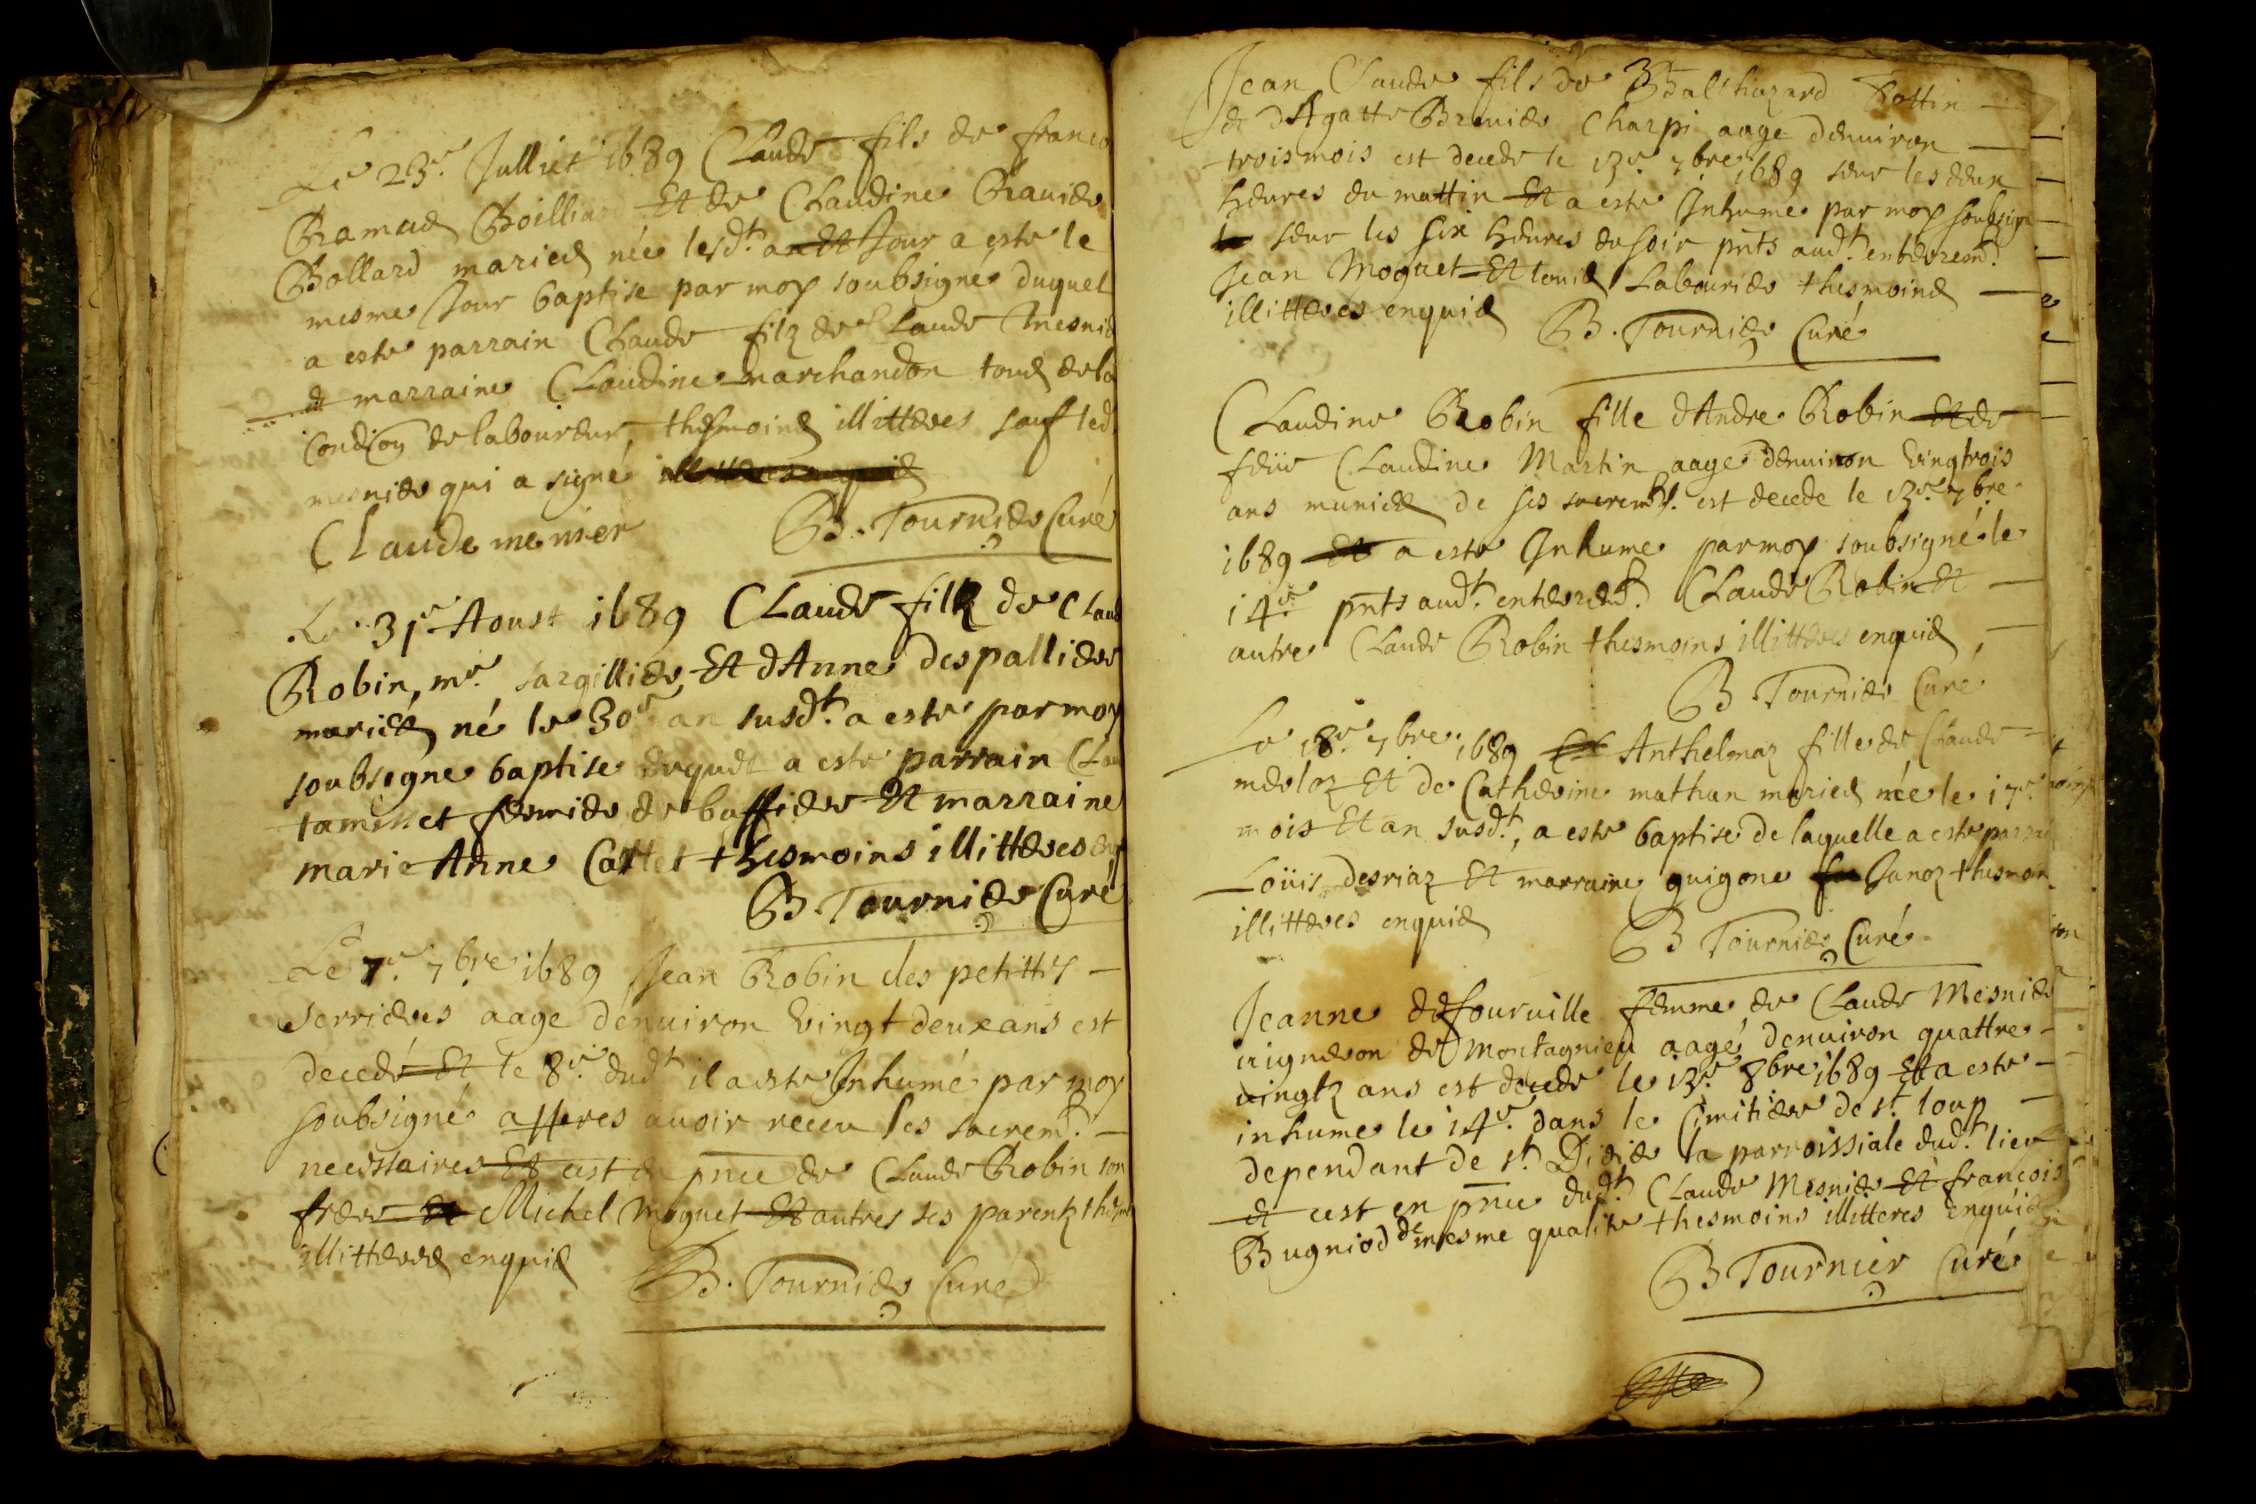 Le 23e Julliet 1689 Claude fils de franco
Ramud Boilliard Et de Claudine Ravier
Bollard mariez née lesdt. an et Jour a este le
mesme Jour baptise par moy soubsigné duquel
a este parrain Claude filz de Claude Mesnier
et marraine Claudine marchandon tous de la
condi͠on de laboureur, thesmoins illitteres sauf led.
mesnier qui a signé
Claude menier B. Tournier Curé
Le 31e Aoust 1689 Claude filz de Claude
Robin, me. sargillier, Et dAnne despallier
mariez né le 30e an susdt. a este par moy
soubsigne baptise duquel a este parrain Clau
taminet fermier de buffier Et marraine
marie Anne Cattet thesmoins illitteres enq
B. Tournier Curé
Le 7e 7bre 1689 Jean Robin des petittes
Serrieres aage denuiron Vingt deux ans est
decedé Et le 8e dudt il a este Inhumé par moy
soubsigné appres auoir receu les sacremts.
necessaires Et cest en pnce de Claude Robin son
frere Et Michel Moguet Et autres ses parentz thesm
illitteres enquis
B. Tournier Curé
Jean Claude fils de Balthazard Pottin
et dAgatte Brenier Charpi aage denuiron
trois mois est decede le 13e 7bre 1689 seur les deux
heures du mattin Et a este Inhumé par moy soubsign
seur les six heures du soir pnts audt. enterremt.
Jean Moguet Et louis Labourier thesmoins
illitteres enquis
B. Tournier Curé
Claudine Robin fille dAndre Robin Et de
feüe Claudine Martin aage denuiron Vingtrois
ans muniez de ses sacremts. est decede le 13e 7bre
1689 Et a este Inhume par moy soubsigné le
14e pnts audt. enterremt. Claude Robin Et
autre Claude Robin thesmoins illitteres enquis
B. Tournier Curé
Le 18e 7bre 1689 Anthelmaz fille de Claude
merloz Et de Catherine mathan mariez née le 17e
mois Et an susdt., a este baptise de laquelle a este parrain
Loüis desriaz Et marraine guigone Janoz thesmoin
illitteres enquis
B Tournier Curé
Jeanne de fouruille femme de Claude Mesnier
uigneron de Montagnieu aagé denuiron quattre
uingtz ans est decede le 13e 8bre 1689 Et a este
inhume le 14e dans le Cimitier de st. loup
dependant de st. Didier la parroissiale dudt. lieu
et cest en pnce dudt. Claude Mesnier Et francois
Bugniod de mesme qualite thesmoins illitteres enquis
B Tournier Curé